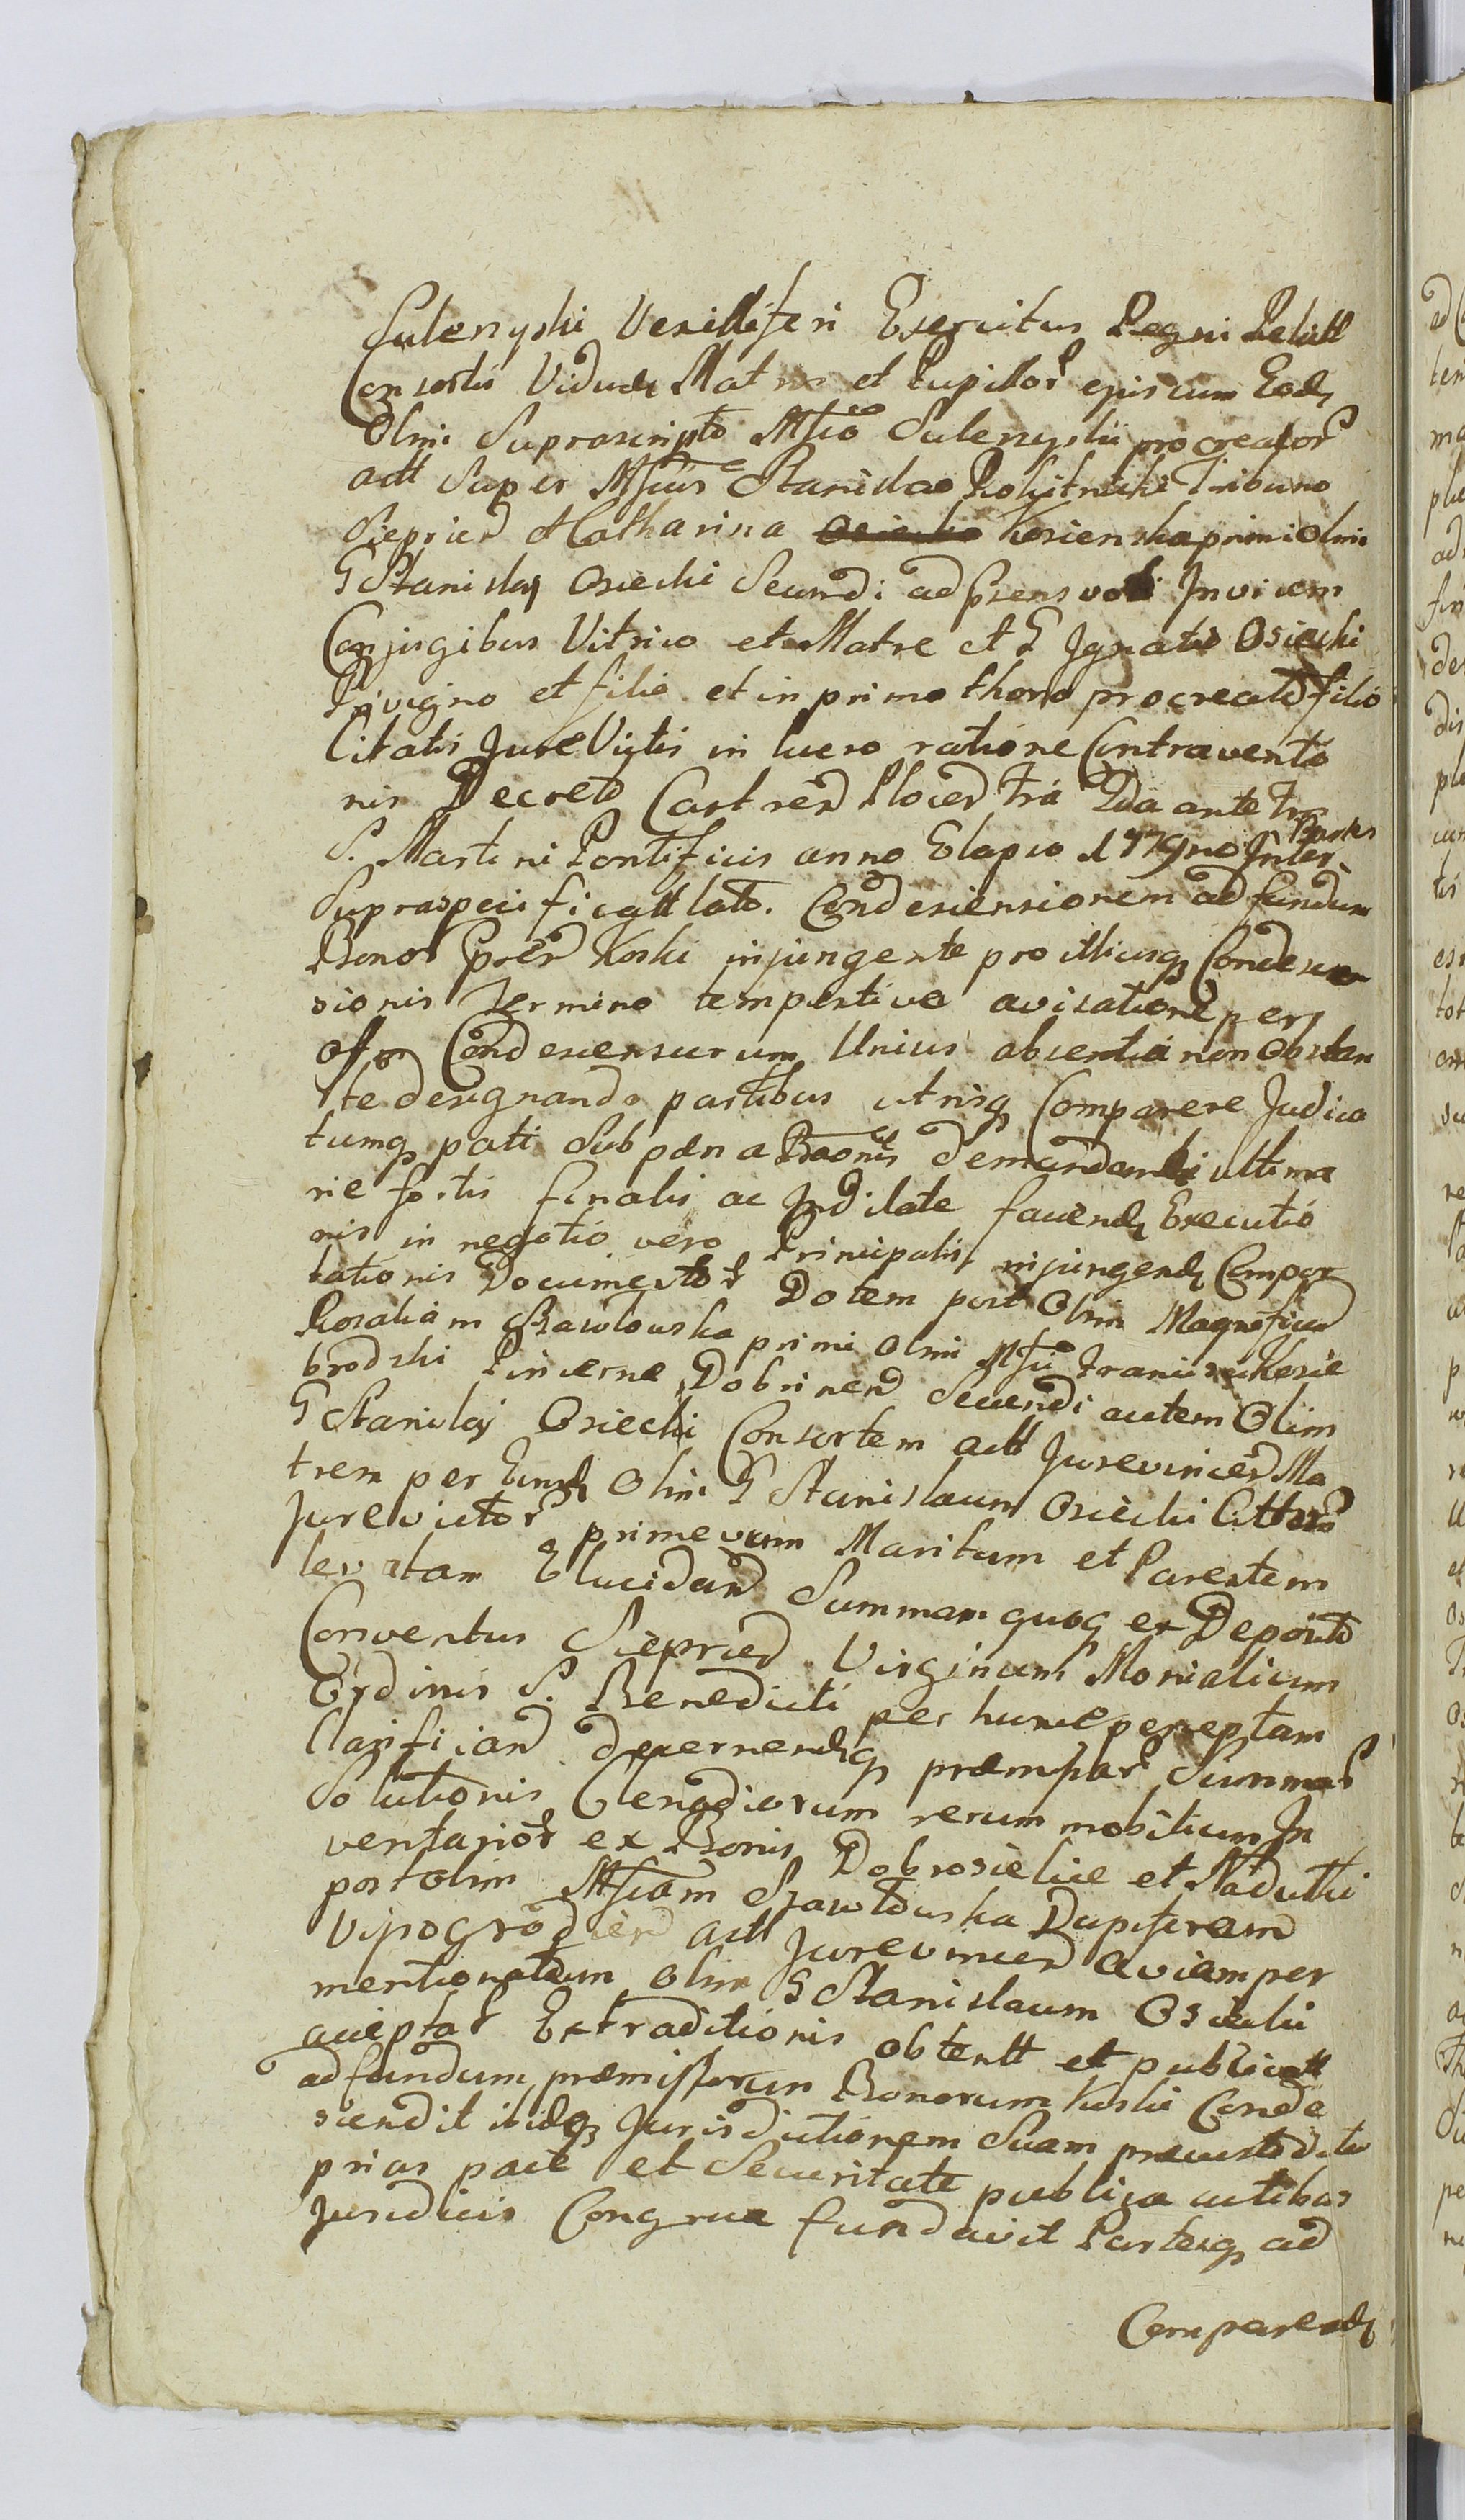 Sulerzyski Vexilliferi Exercitus Regni Relict
Consortis Viduæ Matre et Pupillor ejus cum Eodᶒ
Olim Suprascripto Mfico Sulerzyski procreator
actt Super Mficis Stanislao Rokitnicki Tribuno
Sieprien Catharina Kosienska primi Olim
G Stanislaj Osiecki Secundi ad præns voti Invicem
Conjugibus Vitrico et Matre et G Ignatio Osiecki
Privigno et filio et in primo thoro procreato filio
Citatis Jure Victis in lucro ratione Contraventio
nis Decreto Castren Plocen fria 2da ante fm
S. Martini Pontificis anno Elapso 1779no Inter Partes
Supraspecificatt lato. Condescensionem ad fundum
Bonor præd Koski injungente pro illiusq Condescen
sionis Termino tempestive avisatione per
offm Condescensurum Unius absentia non Obstan
te designando partibus utrisq Comparere Judica
tumq pati Sub pæna Bannis demandandi ultima
rie fortis finalis ac Indilate faciendᶒ Executio
nis in negotio vero Principali injungendᶒ Compor
tationis Documentor Dotem post Olim Magnificam
Rosaliam Srawlowska primi Olim Mfci Francisci Kosie
brodzki Pincernæ Dobrinen Secundi autem Olim
G Stanislaj Osiecki Consortem actt Jurevincen Ma
trem per Eundᶒ Olim G Stanislaum Osiecki Cittor
Jurevictor primevum Maritum et Parentem
levatam Elucidand Summam quoq ex Deposito
Conventus Sieprien Virginum Monialium
Ordinis S. Benedicti per hunc perceptam
Clarificand decernendᶒq præmissar Summar
Solutionis Clenodiorum rerum mobilium In
ventarior ex Bonis Dobrosielice et Nadułki
post olim Mficam Srawłowska Dapiferam
Wyszogrodien actt Jurevincen aviam per
mentionatum olim G Stanislaum Osiecki
acceptar Extraditionis obtentt et publicatt
ad fundum præmissorum Bonorum Koski Conde
scendit ibidᶒq Jurisdictionem Suam præcustodita
prius pace et Securitate publica actibus
Juridicis Congrua fundavit Partesq ad
Comparendᶒ